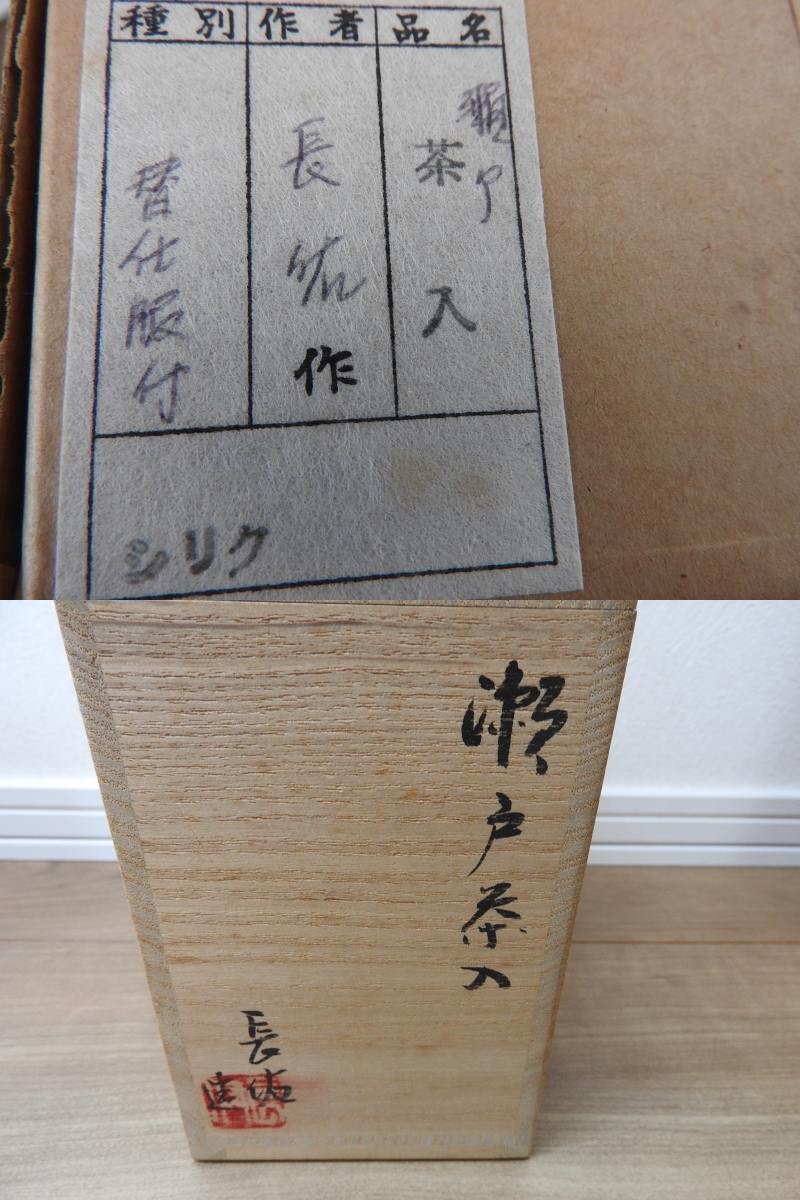 品名
茶入
作者
長佑作
種別
替仕服付
シリク
瀬戸茶入
長佑
造